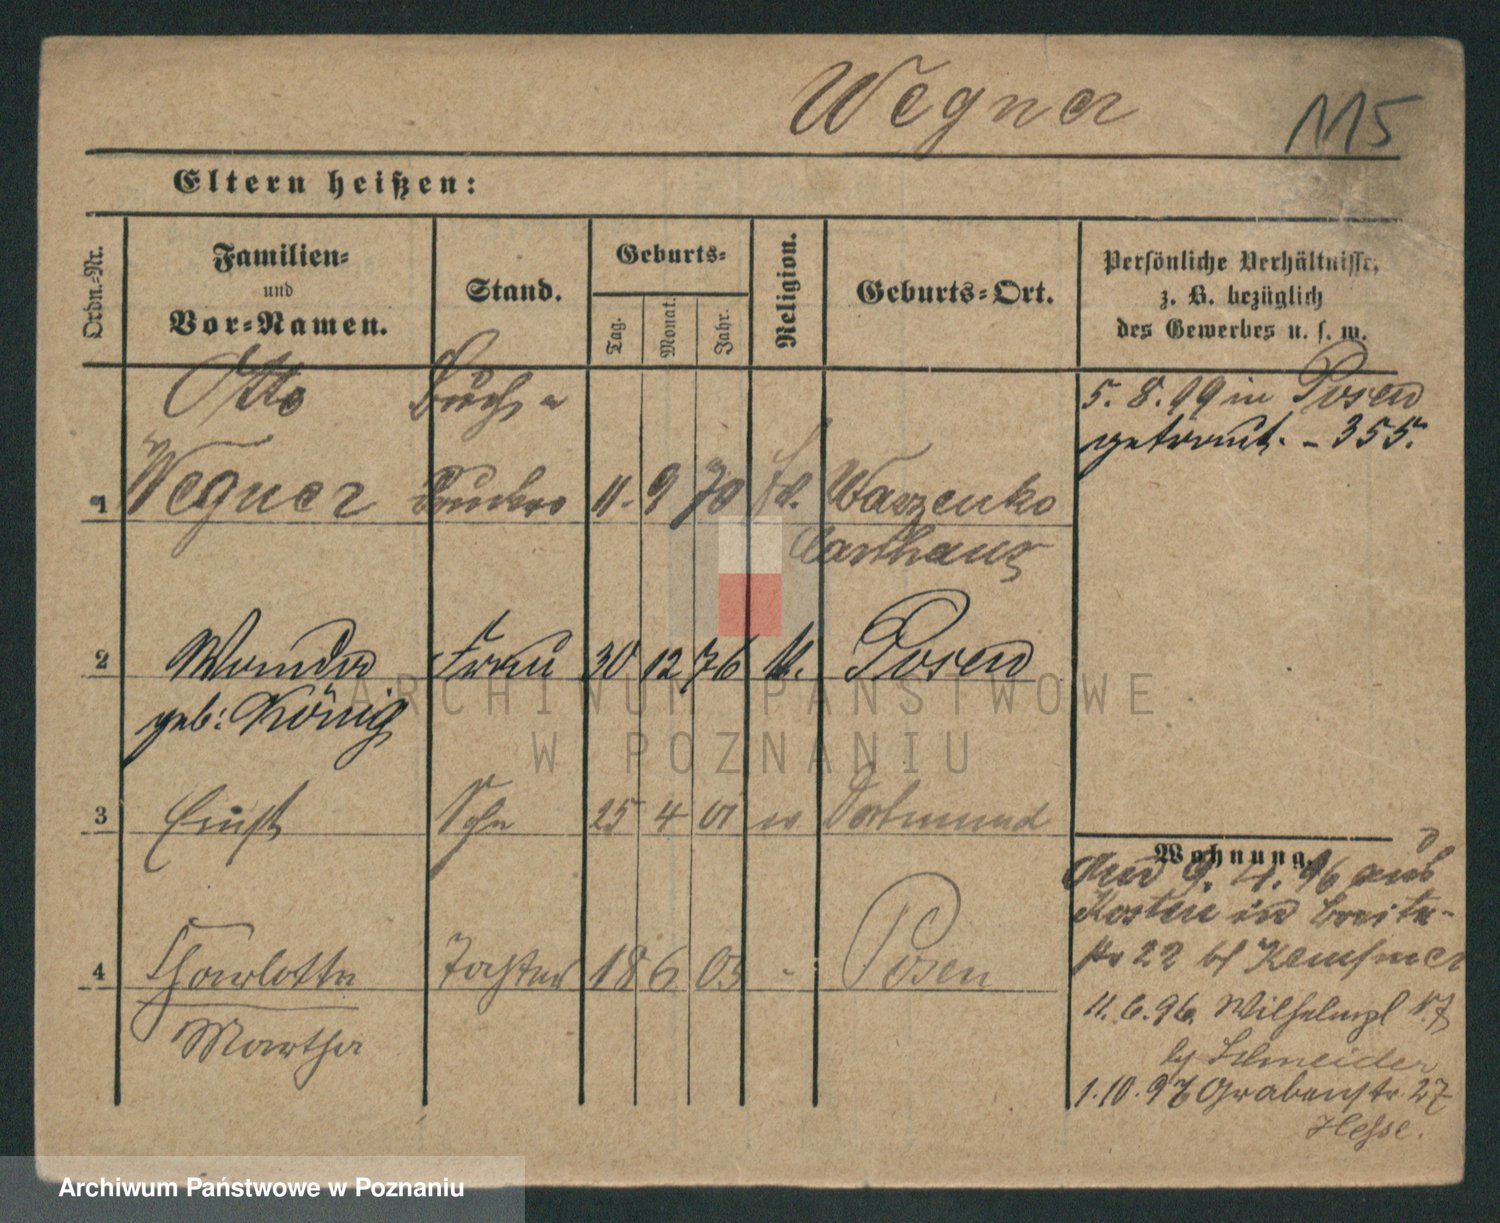 Wegner
115
Eltern heißen:
Ordn.-Nr.
Familien-
und
Vor-Namen.
Stand.
Geburts-
Tag.
Monat.
Jahr.
Religion.
Geburts-Ort.
Persönliche Verhältnisse,
z. B. bezüglich
des Gewerbes u. s. w.
Otto Buch-
5. 8. 99 in Posen
getraut. - 355.
1 Wegner 11. 9 70 Warzenko
Carthaus
2 Wanda Frau 30 12 76 Posen
geb: König
3 Ernst Sohn 25 4 01 Dortmund
4 Charlotte Tochter 18 6 03 - Posen
Martha
Wohnung.
9. 4. 96 aus
Kosten in Breite-
str 22 bei Kempner
11. 6. 96. Wilhelmpl 17
by Schneider
1. 10. 97 Grabenstr. 27
Hesse.
ARCHIWUM PAŃSTWOWE
W POZNANIU
Archiwum Państwowe w Poznaniu